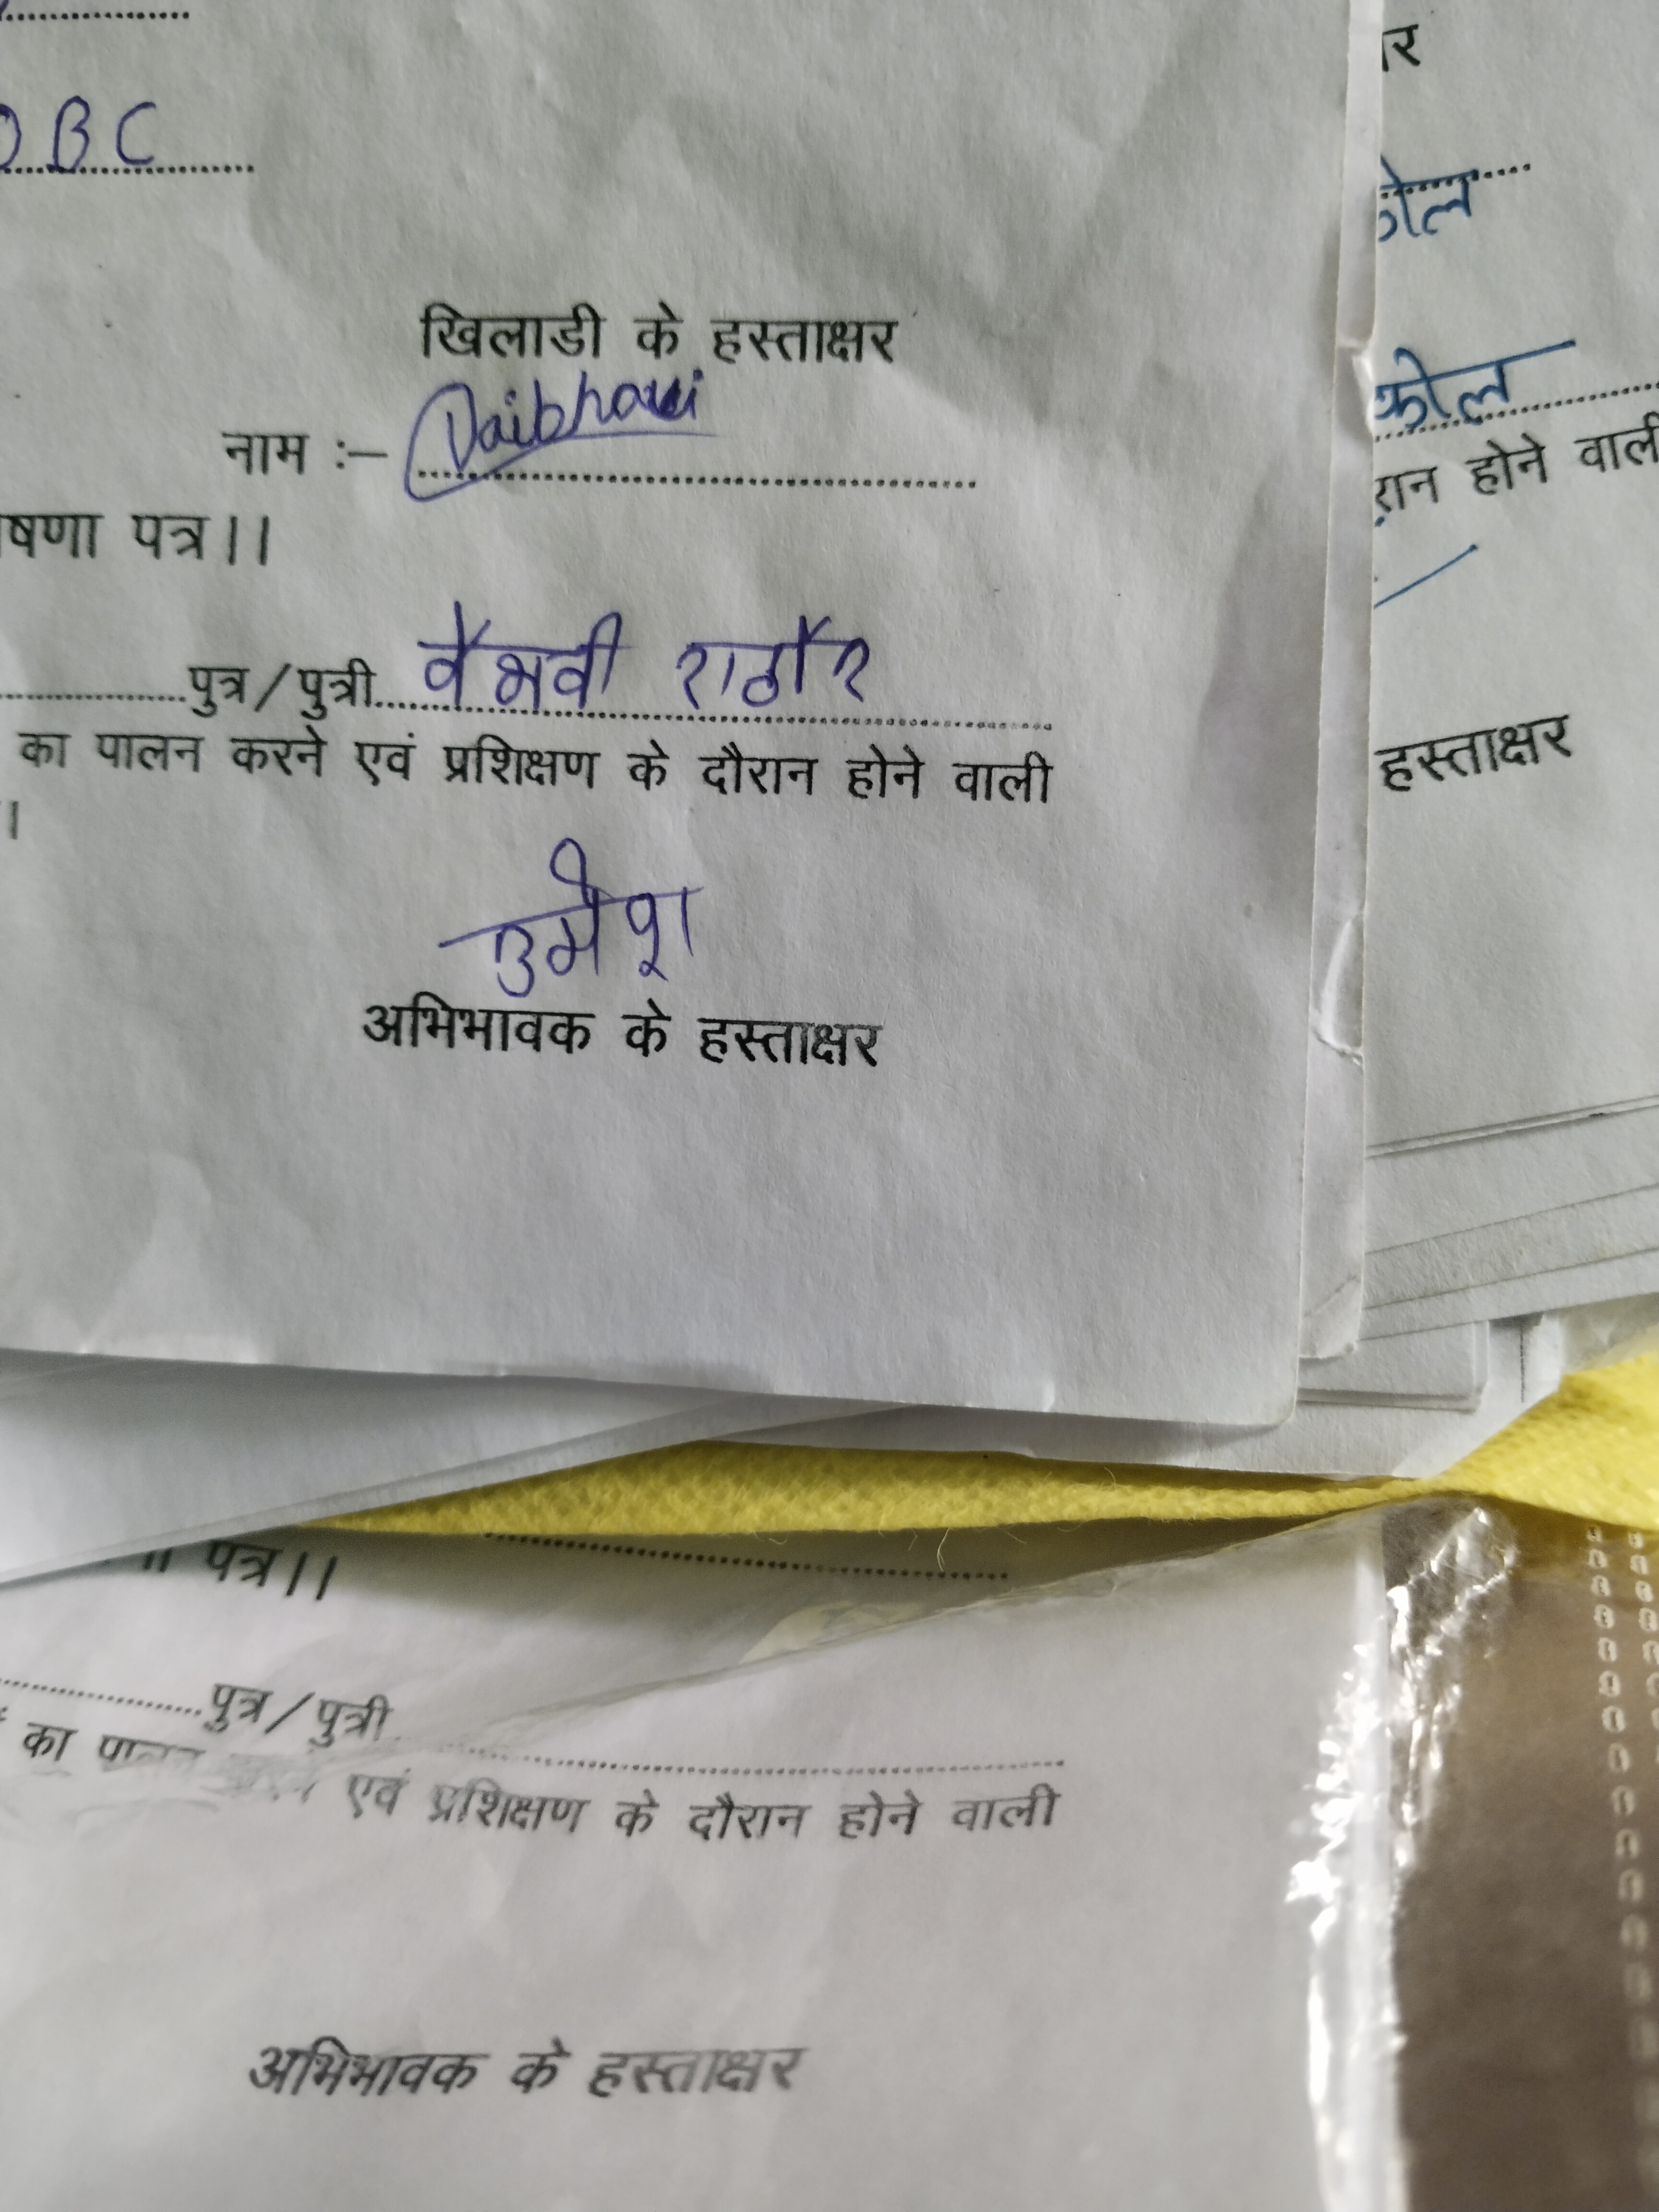 OBC
खिलाडी के हस्ताक्षर
नाम :– Vaibhavi
षणा पत्र।।
पुत्र/पुत्री वैभवी राठौर
का पालन करने एवं प्रशिक्षण के दौरान होने वाली
।
उमेश
अभिभावक के हस्ताक्षर
र
कोल
होने वाली
हस्ताक्षर
पत्र।।
पुत्र/पुत्री
का पालन एवं प्रशिक्षण के दौरान होने वाली
अभिभावक के हस्ताक्षर